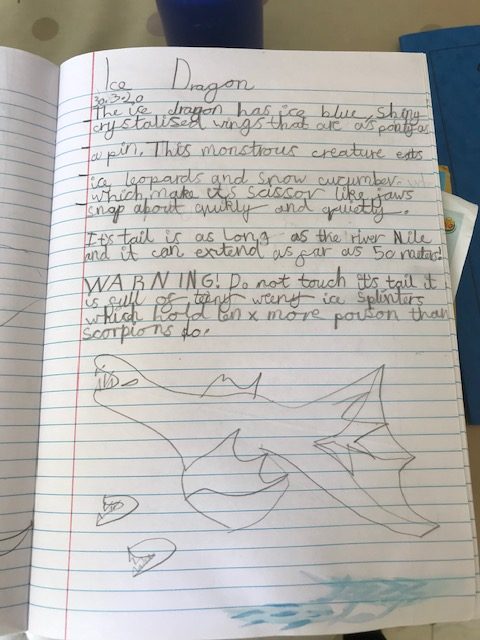 Ice Dragon
30.3.20
The ice dragon has ice blue, shiny
crystalised wings that are as pointy as
a pin. This monstrous creature eats
ice leopards and snow cucumber
which make it's scissor like jaws
snap about quikly and quietly.
It's tail is as long as the river Nile
and it can extend as far as 50 meters!
WARNING! Do not touch it's tail it
is full of teeny weeny ice splinters
which hold ten x more poison than
scorpions do!